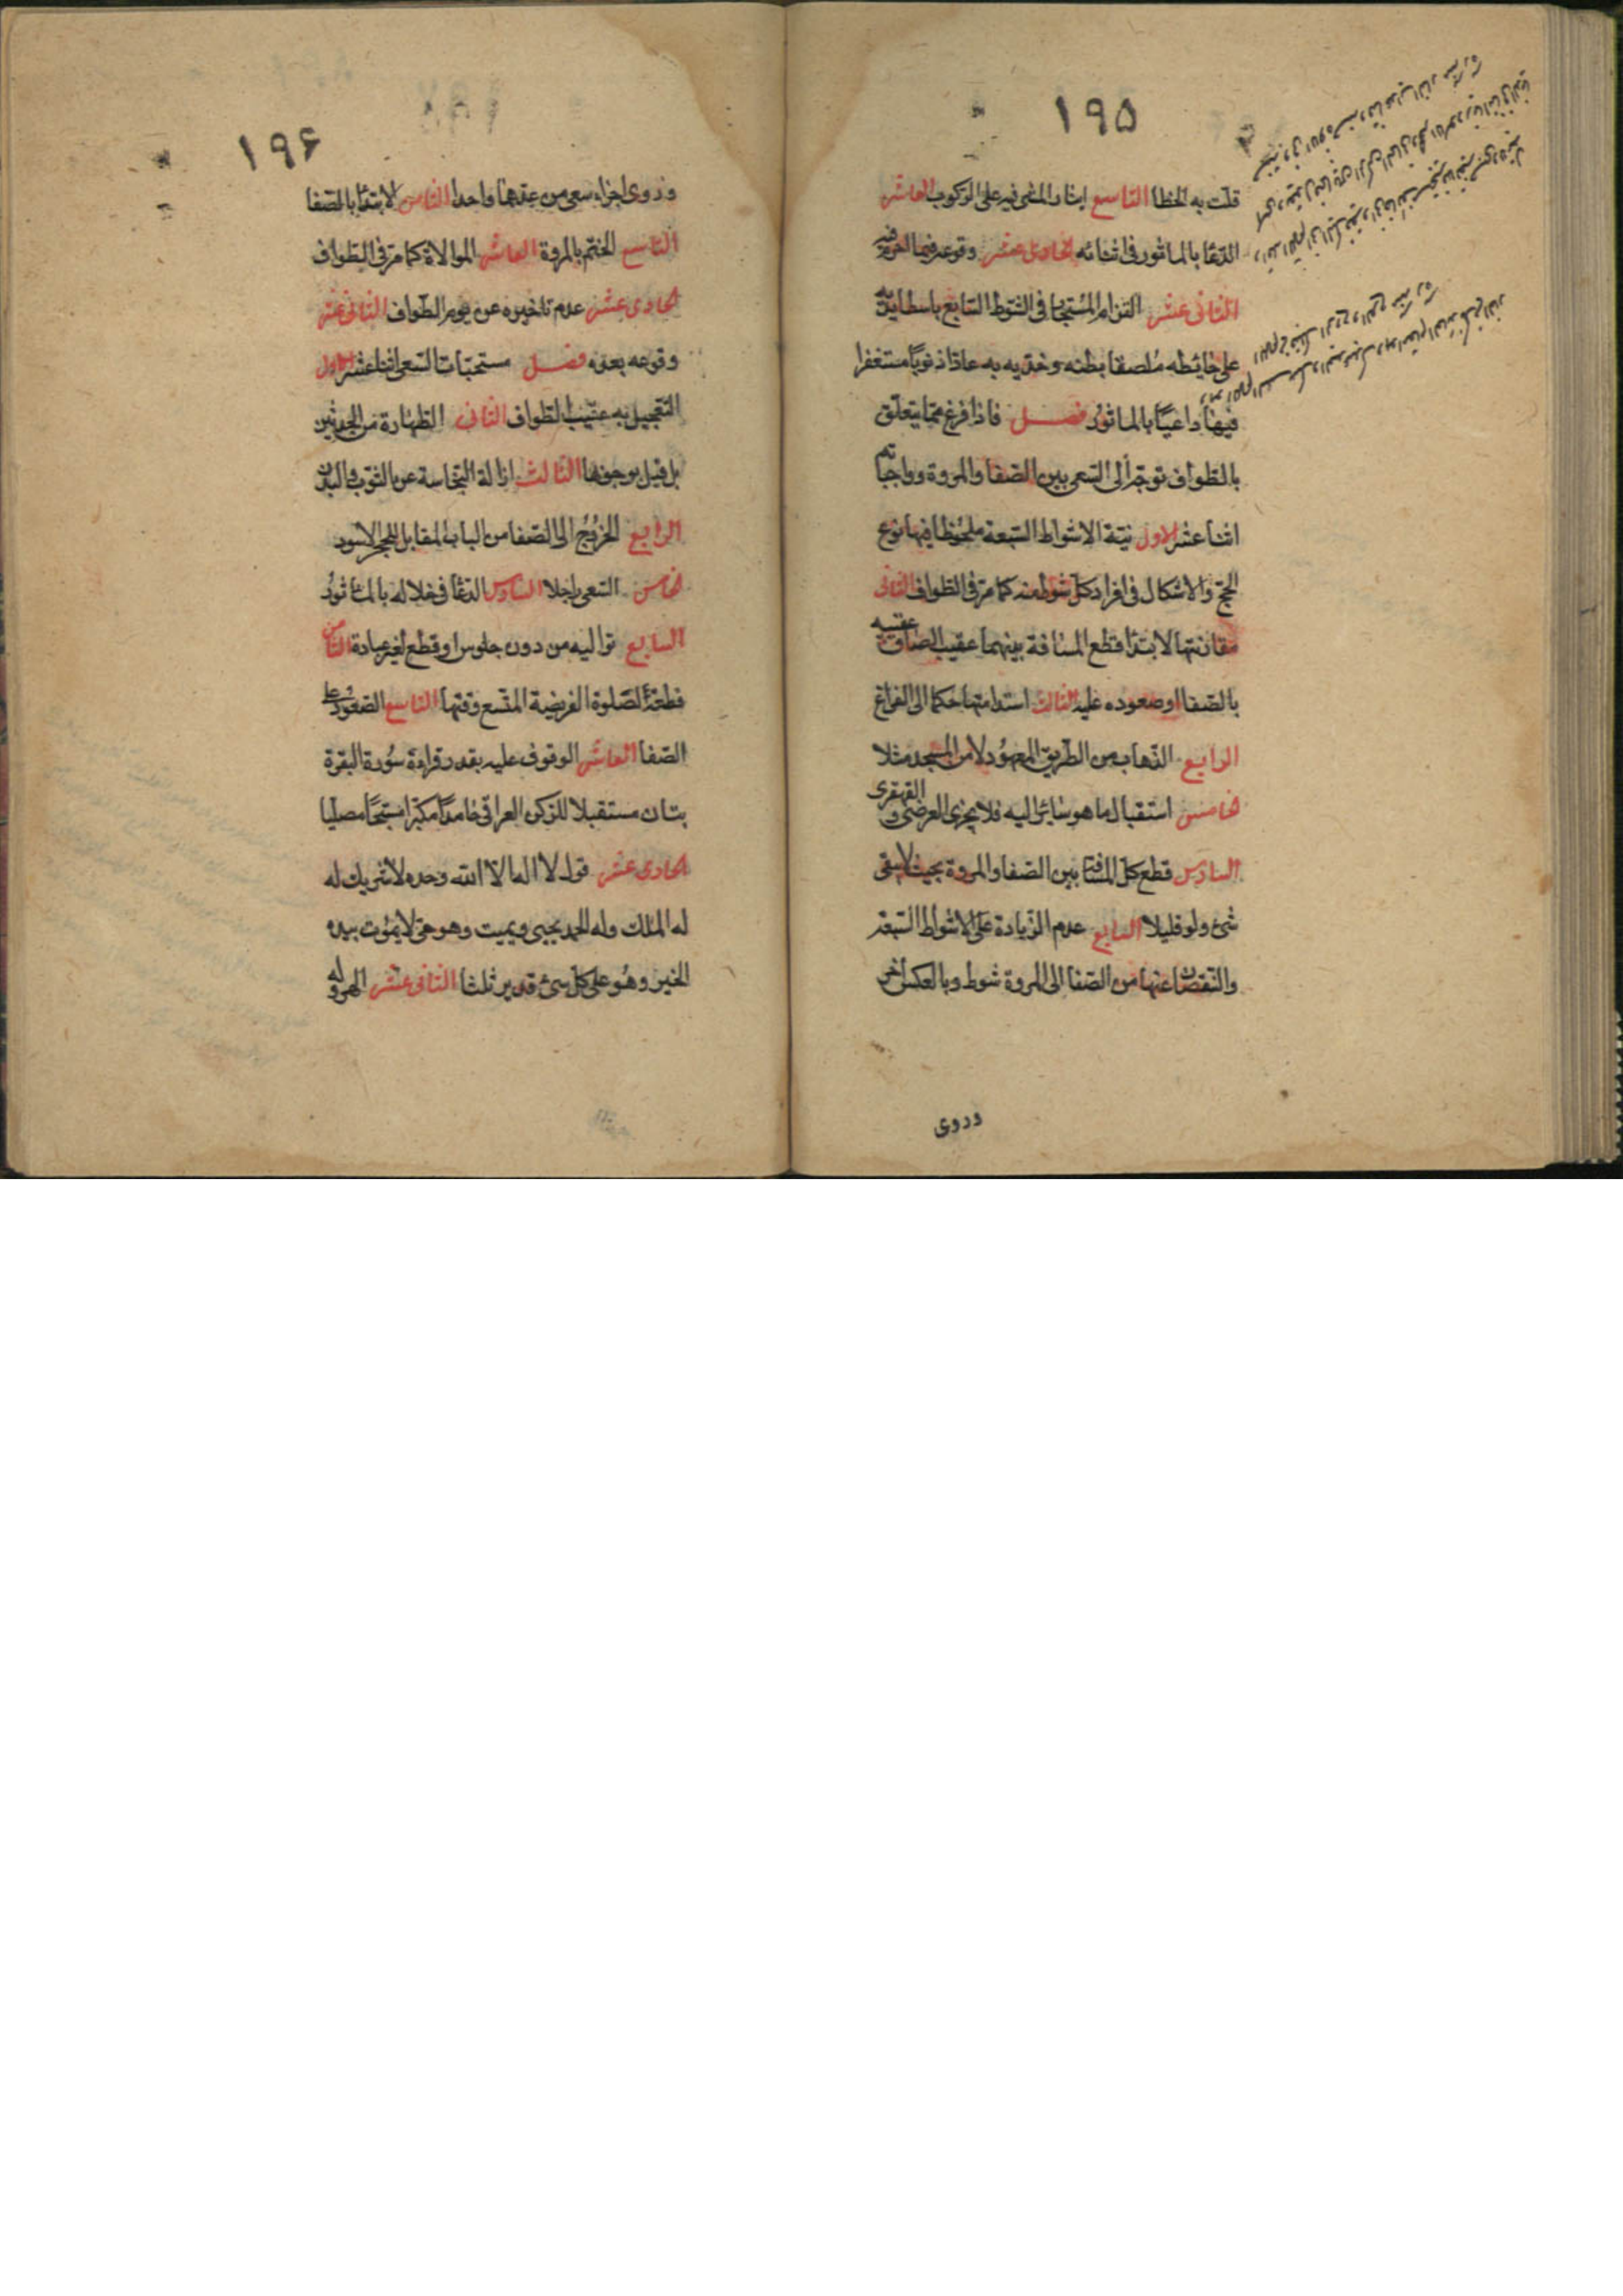 ۱۹۵
قلّت به الخطا التاسع ايثار المشى فيه على الركوب العاشر
الدعا بالماثور فى اثنائه الحادى عشر وقوعه فيما
الثانى عشر التزام المستجار فى الشوط السابع باسطا يديه
على حائطه ملصقا بطنه وخديه به عادّا ذنوبه مستغفرا
فيها داعيا بالماثور فصل فاذا فرغ مما يتعلق
بالطواف توجه الى السعى بين الصفا والمروة وواجباته
اثنا عشر الاول نيّة الاشواط السبعة ملحوظا فيها نوع
الحج والاشكال فى افراد كل شوط منه كما مر فى الطواف الثانى
مقارنتها لابتداء قطع المسافة بينهما عقيب الصاق عقبيه
بالصفا او صعوده عليه الثالث استدامتها حكما الى الفراغ
الرابع الذهاب من الطريق المعهود لا من المسجد مثلا
الخامس استقبال ما هو سائر اليه فلا يجزى العرضى و القهقرى
السادس قطع كل المسافة بين الصفا والمروة بحيث لا يبقى
شئ ولو قليلا السابع عدم الزيادة على الاشواط السبعة
والنقصان عنها من الصفا الى المروة شوط وبالعكس اخر
وروى
۱۹۶
وروى اجزاء سعى من عدهما واحدا الثامن الابتداء بالصفا
التاسع الختم بالمروة العاشر الموالاة كما مر فى الطواف
الحادى عشر عدم تاخيره عن يوم الطواف الثانى عشر
وقوعه بعده فصل مستحبات السعى اثنا عشر الاول
التعجيل به عقيب الطواف الثانى الطهارة من الحدثين
بل قيل بوجوبها الثالث ازالة النجاسة عن الثوب والبدن
الرابع الخروج الى الصفا من الباب المقابل للحجر الاسود
الخامس السعى راجلا السادس الدعا فى خلاله بالماثور
السابع تواليه من دون جلوس او قطع لغير عبادة الثامن
قطعه لصلوة الفريضة المتسع وقتها التاسع الصعود على
الصفا العاشر الوقوف عليه بقدر قراءة سورة البقرة
بتان مستقبلا للركن العراقى حامدا مكبرا مسبحا مصليا
الحادى عشر قول لا اله الا الله وحده لا شريك له
له الملك وله الحمد يحيى ويميت وهو حى لا يموت بيده
الخير وهو على كل شئ قدير ثلثا الثانى عشر الهرولة